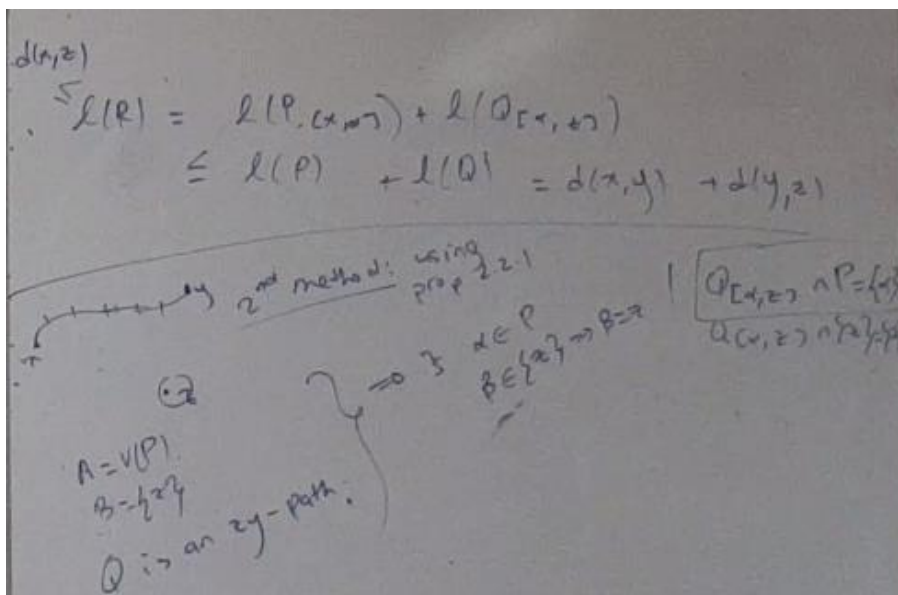 d(x,z)
≤ l(R) = l(P[x,α]) + l(Q[α,z])
≤ l(P) + l(Q) = d(x,y) + d(y,z)
2nd method: using prop 2.2.1
y
x
z
A = V(P)
B = {z}
Q is an zy-path.
⇒ ∃ α ∈ P
β ∈ {z} ⇒ β = z
Q[α,z] ∩ P = {α}
Q[α,z] ∩ {z} =